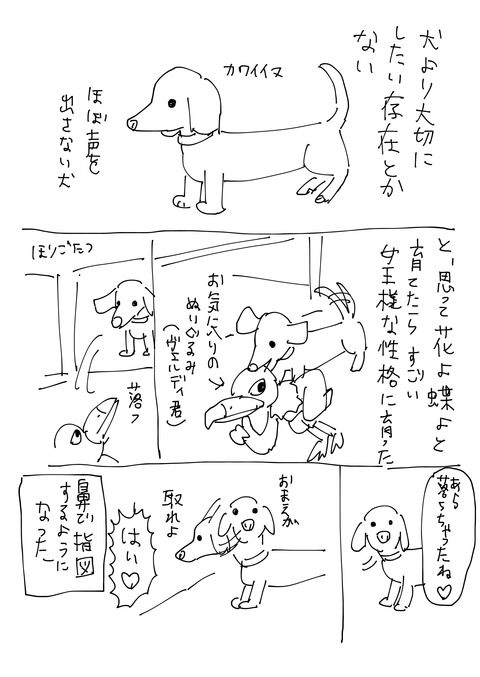 犬より大切に
したい存在とか
ない
カワイイヌ
ほぼ声を
出さない犬
と、思って花よ蝶よと
育てたらすごい
女王様な性格に育った
お気に入りの
ぬいぐるみ
(ヴェルディ君)
ほりごたつ
落つ
あら
落ちちゃったね♡
おまえが
取れよ
はい♡
鼻で指図
するように
なった